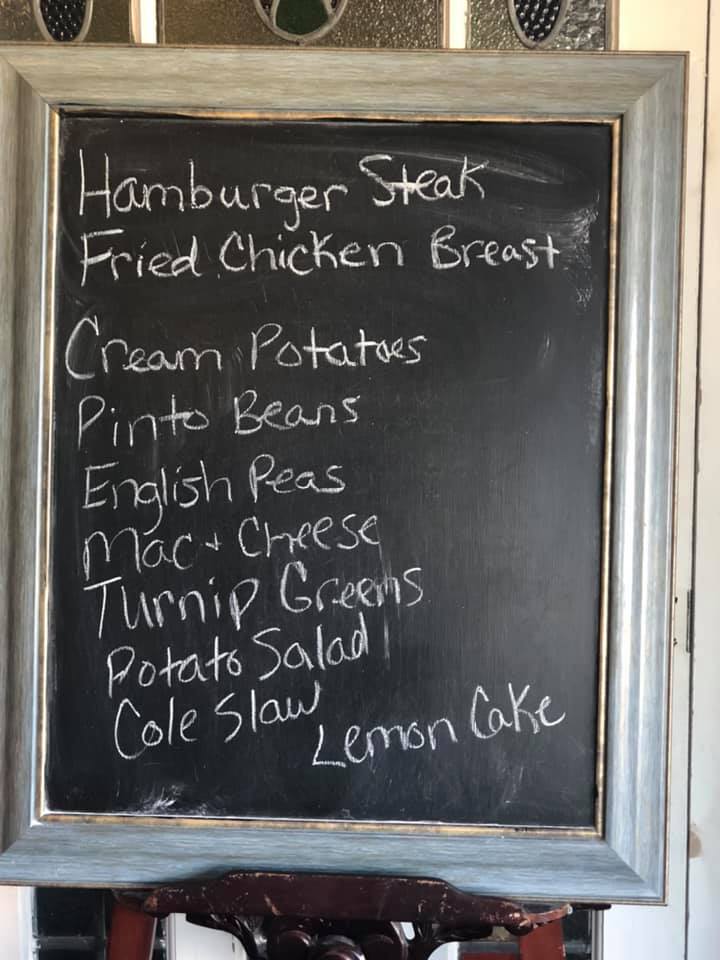 Hamburger Steak
Fried Chicken Breast
Cream Potatoes
Pinto Beans
English Peas
Mac + Cheese
Turnip Greens
Potato Salad
Cole Slaw
Lemon Cake